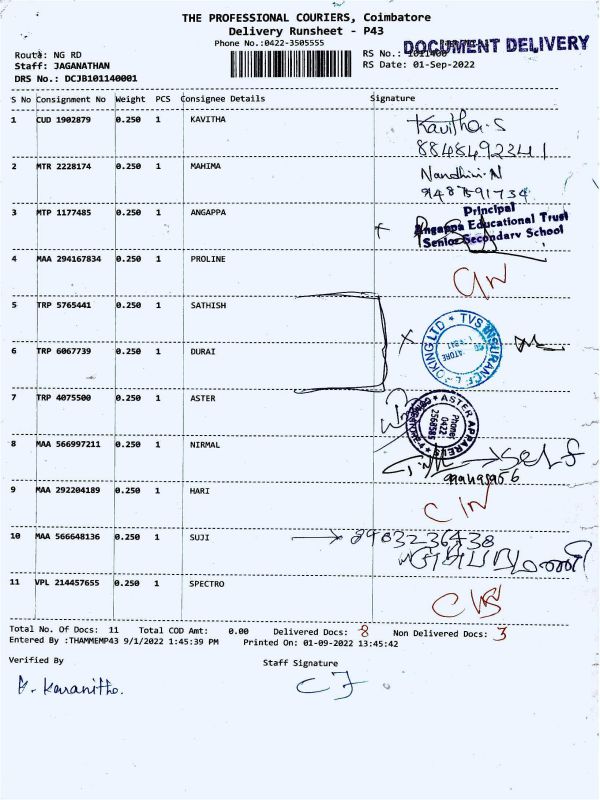 THE PROFESSIONAL COURIERS, Coimbatore
Delivery Runsheet - P43
Phone No.:0422-3505555
DOCUMENT DELIVERY
Route: NG RD
RS No.: 1011400
Staff: JAGANATHAN
RS Date: 01-Sep-2022
DRS No.: DCJB101140001
S No Consignment No Weight PCS Consignee Details Signature
1 CUD 1902879 0.250 1 KAVITHA Kavitha.S
8848492341
2 MTR 2228174 0.250 1 MAHIMA Nandhini.N
9487591734
3 MTP 1177485 0.250 1 ANGAPPA Principal
Angappa Educational Trust
Senior Secondary School
4 MAA 294167834 0.250 1 PROLINE
5 TRP 5765441 0.250 1 SATHISH
TVS INSURANCE BROKING LTD
6 TRP 6067739 0.250 1 DURAI
7 TRP 4075500 0.250 1 ASTER
ASTER APPARELS
Phone:
0422
2568585
8 MAA 566997211 0.250 1 NIRMAL self
9 MAA 292204189 0.250 1 HARI
10 MAA 566648136 0.250 1 SUJI 8983236438
11 VPL 214457655 0.250 1 SPECTRO
Total No. Of Docs: 11 Total COD Amt: 0.00 Delivered Docs: 8 Non Delivered Docs: 3
Entered By :THAMMEMP43 9/1/2022 1:45:39 PM Printed On: 01-09-2022 13:45:42
Verified By Staff Signature